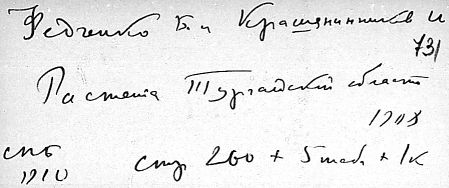 Федченко Б. и Крашенинников И
731
Растения Тургайской области
1908
СПБ
1910 стр 260 + 5 таб + 1 к